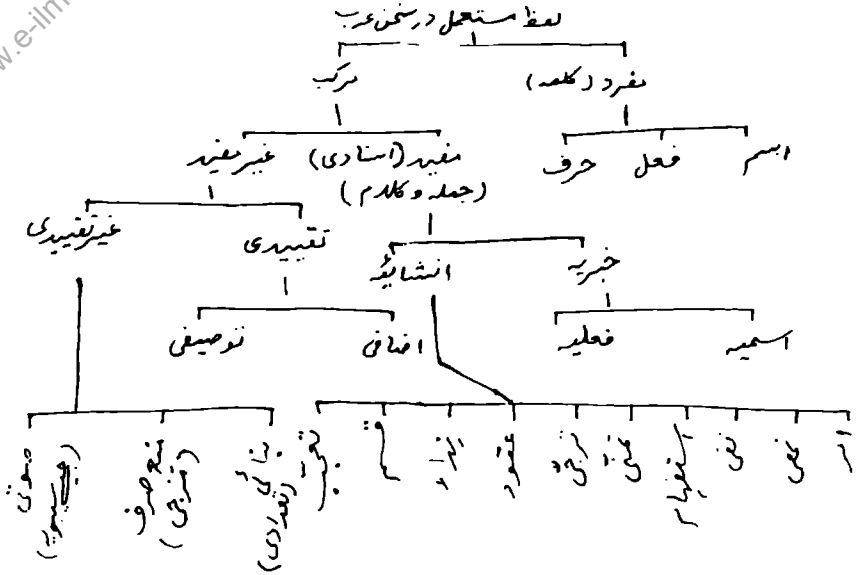 لفظ مستعمل در سخن عرب
مفرد (کلمہ) مرکب
اسم فعل حرف مفید (اسنادی) غیر مفید
(جملہ و کلام)
خبریہ انشائیہ تقییدی غیر تقییدی
اسمیہ فعلیہ اضافی توصیفی
امر نھی نفی استفہام تمنّی ترجّی عقود نداء قسم تعجب
بنائی (تعدادی) منع صرف (مزجی) صوتی